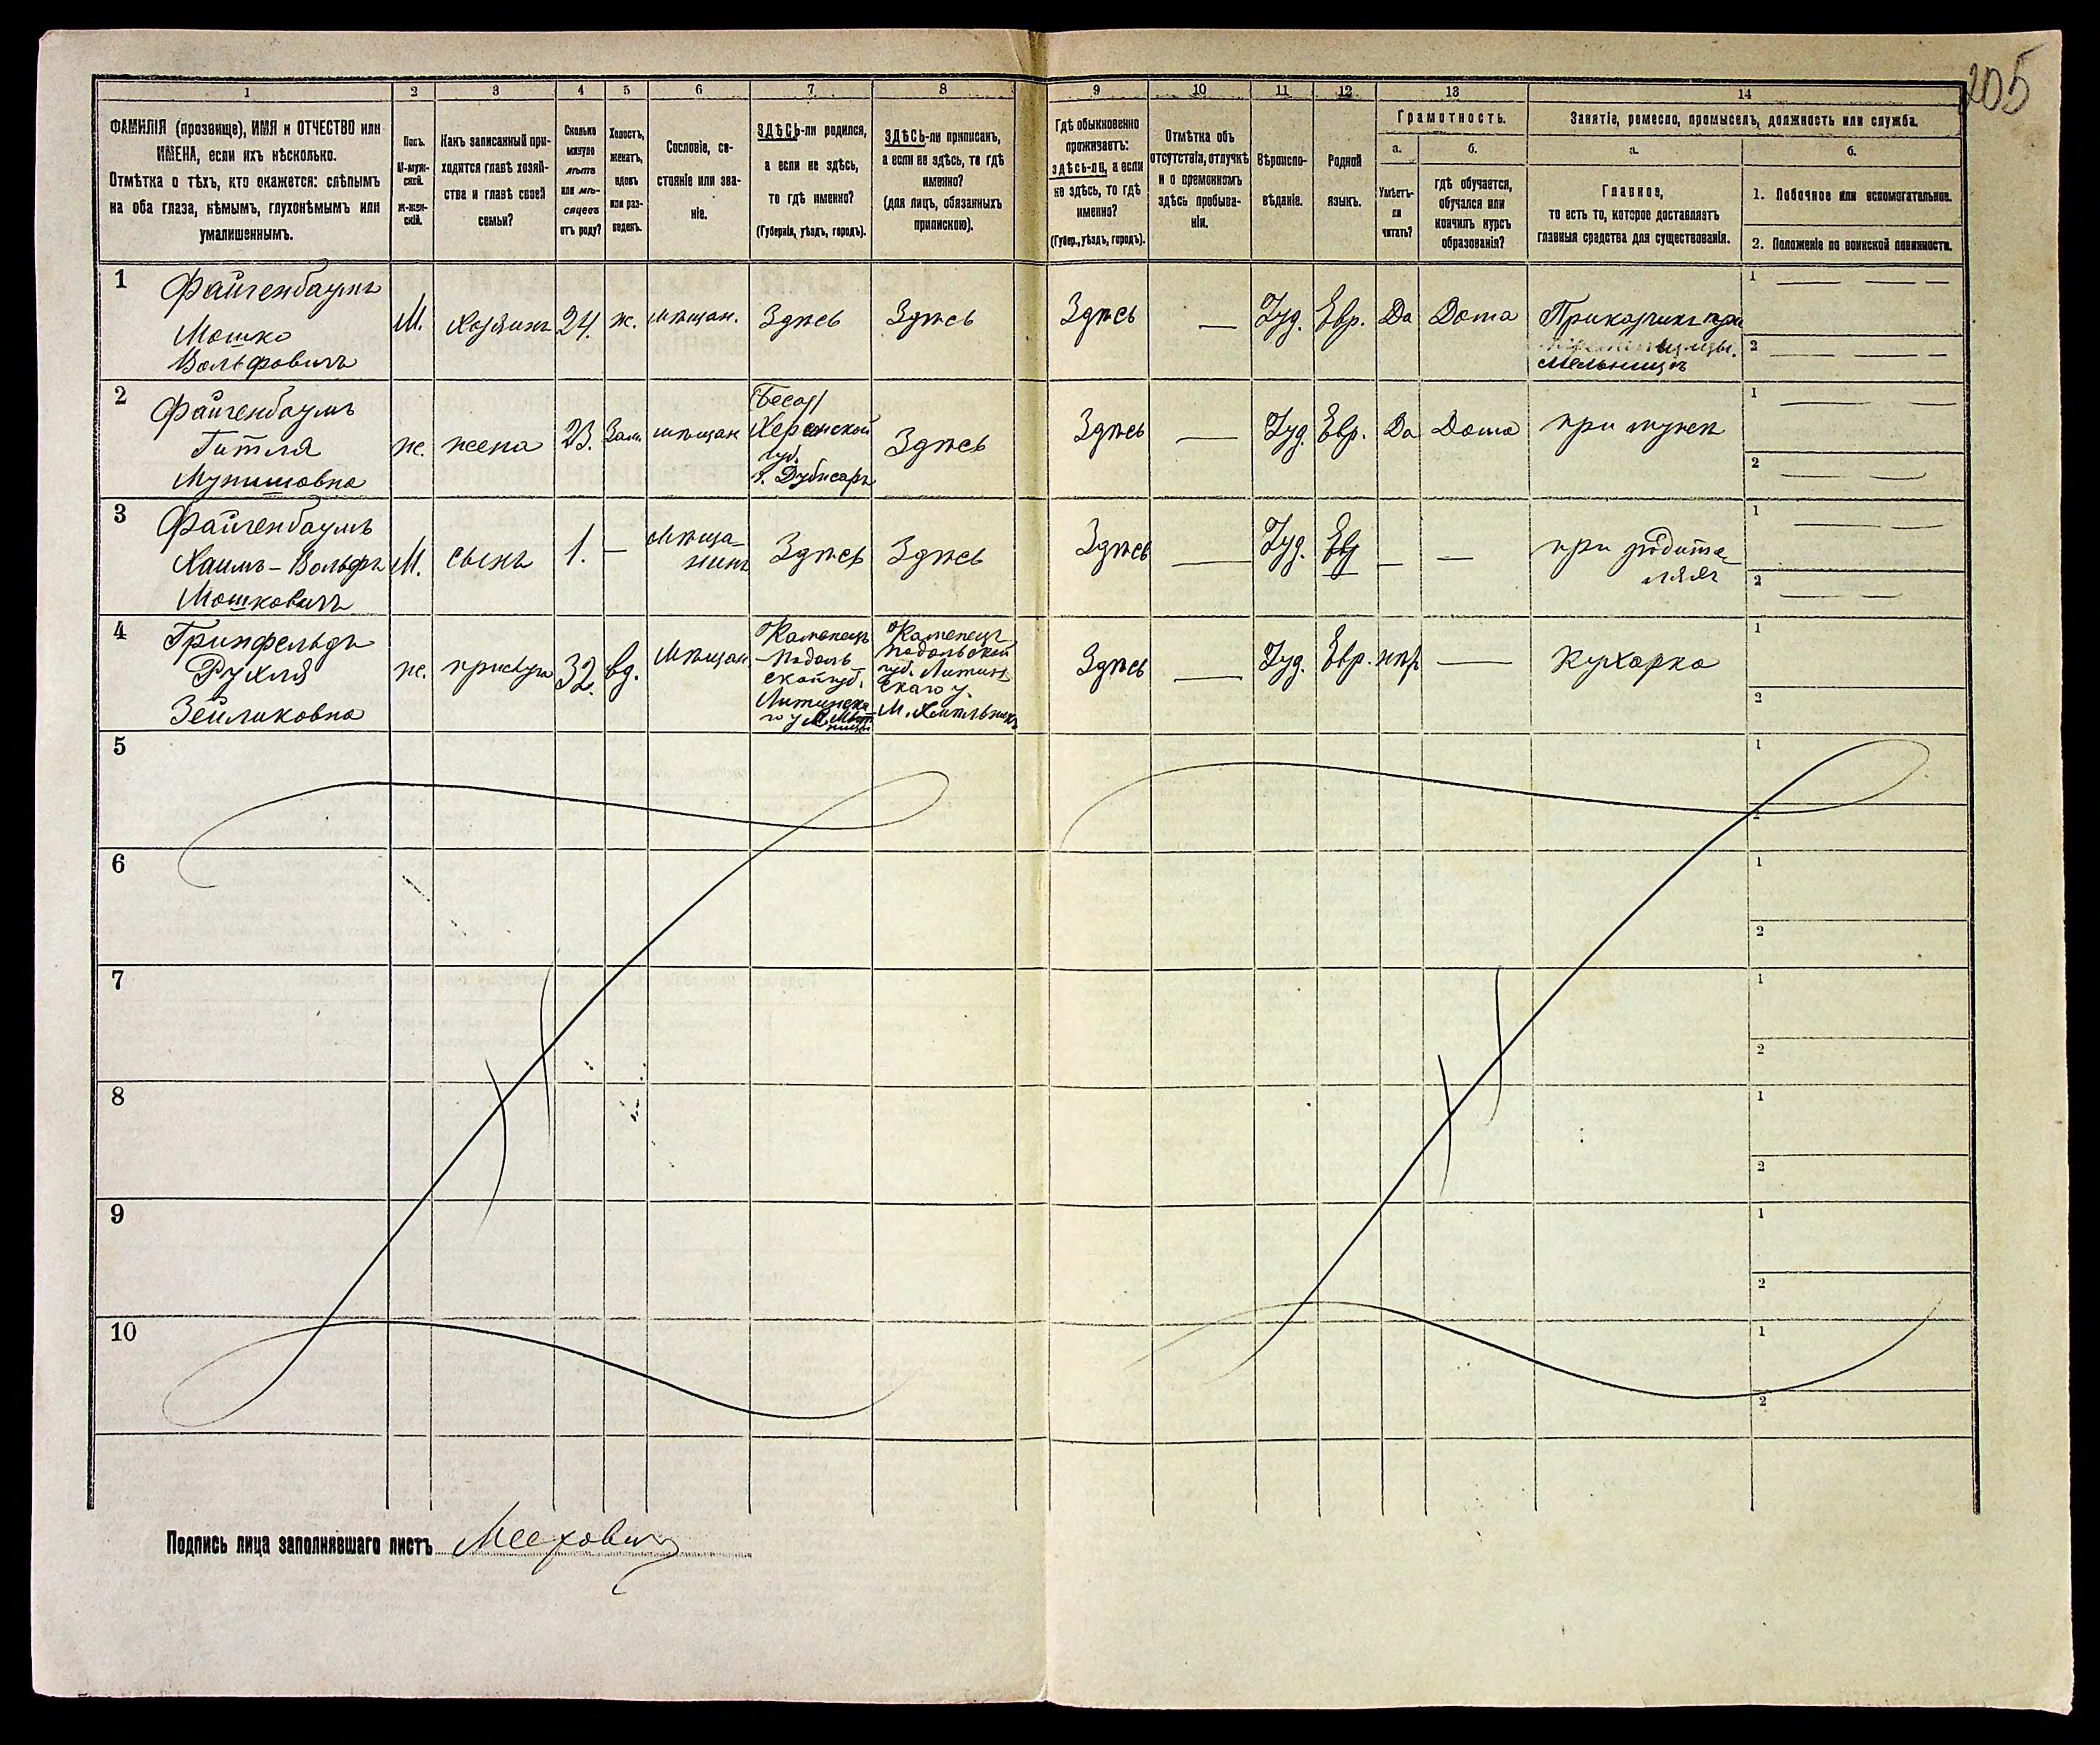 205
1 2 3 4 5 6 7 8 9 10 11 12 13 14
ФАМИЛІЯ (прозвище), ИМЯ и ОТЧЕСТВО или
ИМЕНА, если ихъ нѣсколько.
Отмѣтка о тѣхъ, кто окажется: слѣпымъ
на оба глаза, нѣмымъ, глухонѣмымъ или
умалишеннымъ.
Полъ.
М-муж-
ской.
Ж-жен-
скій.
Какъ записанный при-
ходится главѣ хозяй-
ства и главѣ своей
семьи?
Сколько
минуло
лѣтъ
или мѣ-
сяцевъ
отъ роду?
Холостъ,
женатъ,
вдовъ
или раз-
веденъ.
Сословіе, со-
стояніе или зва-
ніе.
ЗДѢСЬ-ли родился,
а если не здѣсь,
то гдѣ именно?
(Губернія, уѣздъ, городъ).
ЗДѢСЬ-ли приписанъ,
а если не здѣсь, то гдѣ
именно?
(для лицъ, обязанныхъ
припискою).
Гдѣ обыкновенно
проживаетъ:
здѣсь-ли, а если
не здѣсь, то гдѣ
именно?
(Губер., уѣздъ, городъ).
Отмѣтка объ
отсутствіи, отлучкѣ
и о временномъ
здѣсь пребыва-
ніи.
Вѣроиспо-
вѣданіе.
Родной
языкъ.
Грамотность.
а.
Умѣетъ-
ли
читать?
б.
гдѣ обучается,
обучался или
кончилъ курсъ
образованія?
Занятіе, ремесло, промыселъ, должность или служба.
а.
Главное,
то есть то, которое доставляетъ
главныя средства для существованія.
б.
1. Побочное или вспомогательное.
2. Положеніе по воинской повинности.
1
Файгенбаумъ
Мошко
Вольфовичъ
М.
Хозяинъ
24.
ж.
мѣщан.
Здѣсь
Здѣсь
Здѣсь
—
Іуд.
Евр.
Да
Дома
Приказчикъ при
мельницѣ
1 — — —
2 — — —
2
Файгенбаумъ
Гитля
Мунишовна
ж.
жена
23.
Зам.
мѣщан
Бесар
Херсонской
губ.
г. Дубисаръ
Здѣсь
Здѣсь
—
Іуд.
Евр.
Да
Дома
при мужѣ
1 — —
2 — —
3
Файгенбаумъ
Хаимъ-Вольфъ
Мошковичъ
М.
сынъ
1.
—
Мѣща-
нинъ
Здѣсь
Здѣсь
Здѣсь
—
Іуд.
Евр
—
—
при родите-
ляхъ
1 — —
2 — —
4
Гринфельдъ
Рухля
Зейликовна
ж.
прислуга
32.
вд.
Мѣщан
Каменецъ
-Подоль
ской губ.
Литинска-
го у М.
Каменецъ
Подольской
губ. Литин
скаго у.
М. Хмѣльникъ
Здѣсь
—
Іуд.
Евр.
—
Кухарка
1
2
5
1
2
6
1
2
7
1
2
8
1
2
9
1
2
10
1
2
Подпись лица заполнявшаго листъ